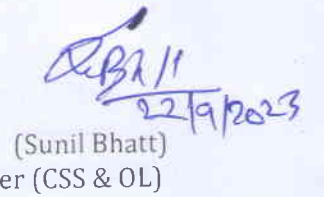 22/9/2023
(Sunil Bhatt)
er (CSS & OL)